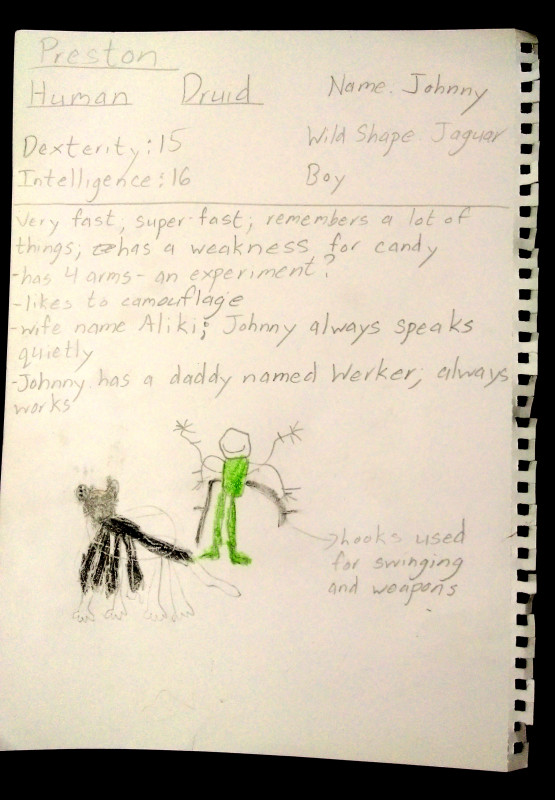 Preston
Human Druid Name. Johnny
Dexterity: 15 Wild Shape. Jaguar
Intelligence: 16 Boy
Very fast, super fast; remembers a lot of
things; has a weakness for candy
-has 4 arms- an experiment?
-likes to camouflage
-wife name Aliki; Johnny always speaks
quietly
-Johnny has a daddy named Werker; always
works
hooks used
for swinging
and weapons